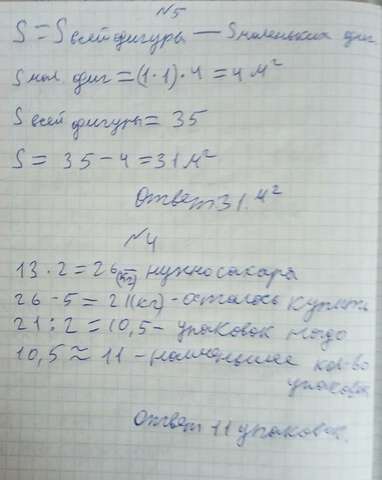 №5
S = S всей фигуры — S маленьких фиг.
S мал. фиг = (1·1)·4 = 4 м²
S всей фигуры = 35
S = 35 - 4 = 31 м²
Ответ 31. м²
№4
13 · 2 = 26 (кг) нужно сахара
26 - 5 = 21(кг) - осталось купить
21 : 2 = 10,5 - упаковок надо
10,5 ≈ 11 - наименьшее кол-во
упаковок
Ответ 11 упаковок.